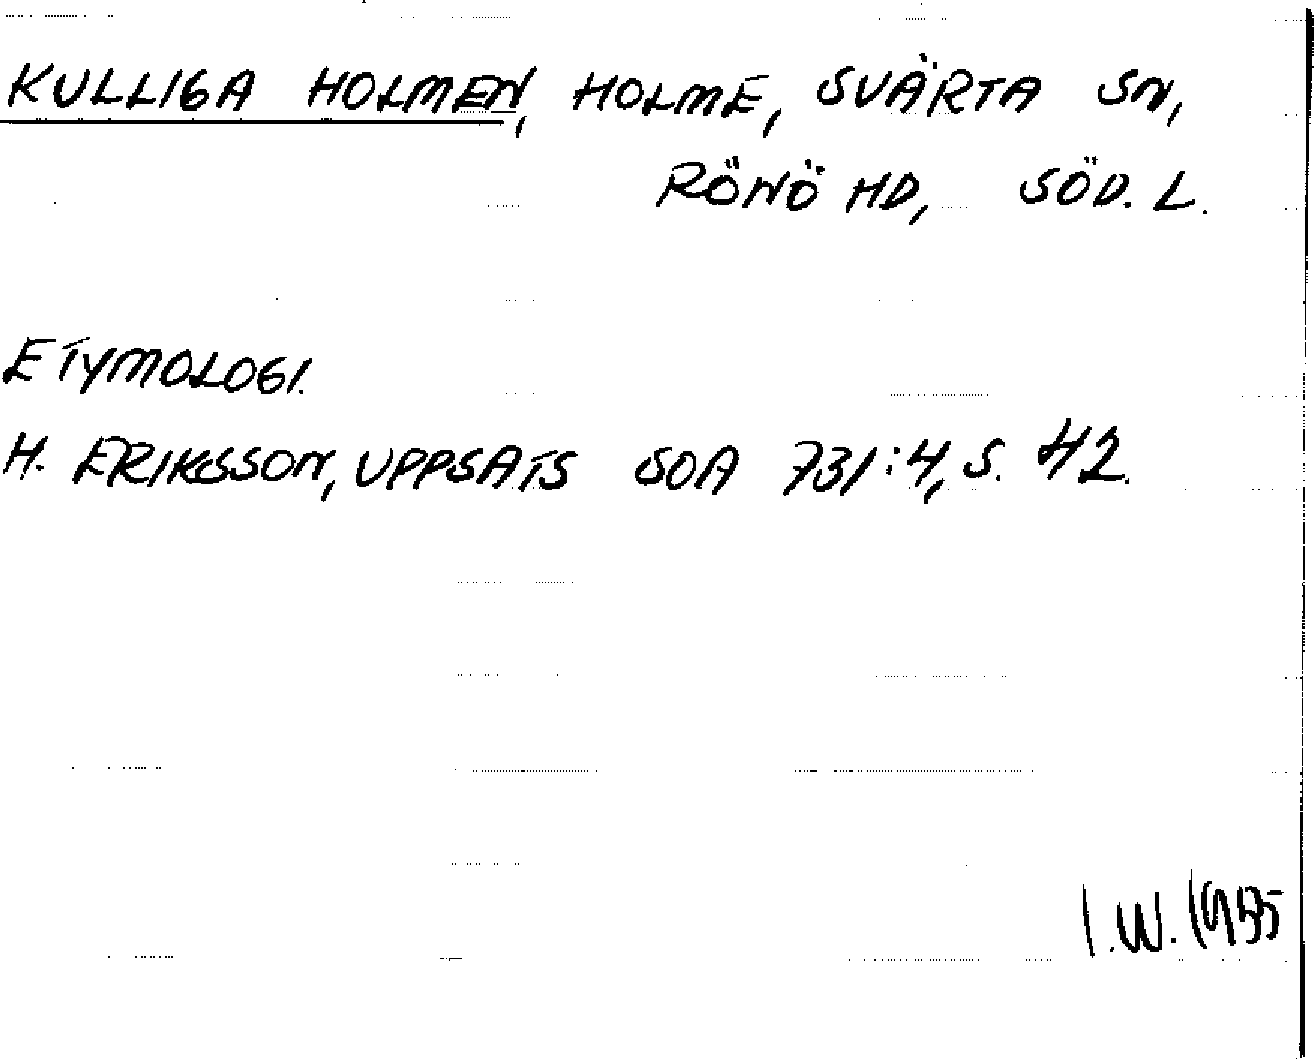 KULLIGA HOLMEN, HOLME, SVÄRTA SN,
RÖNÖ HD, SÖD. L.
ETYMOLOGI.
H. ERIKSSON, UPPSATS SOA 731:4, S. 42.
I.W. 1985